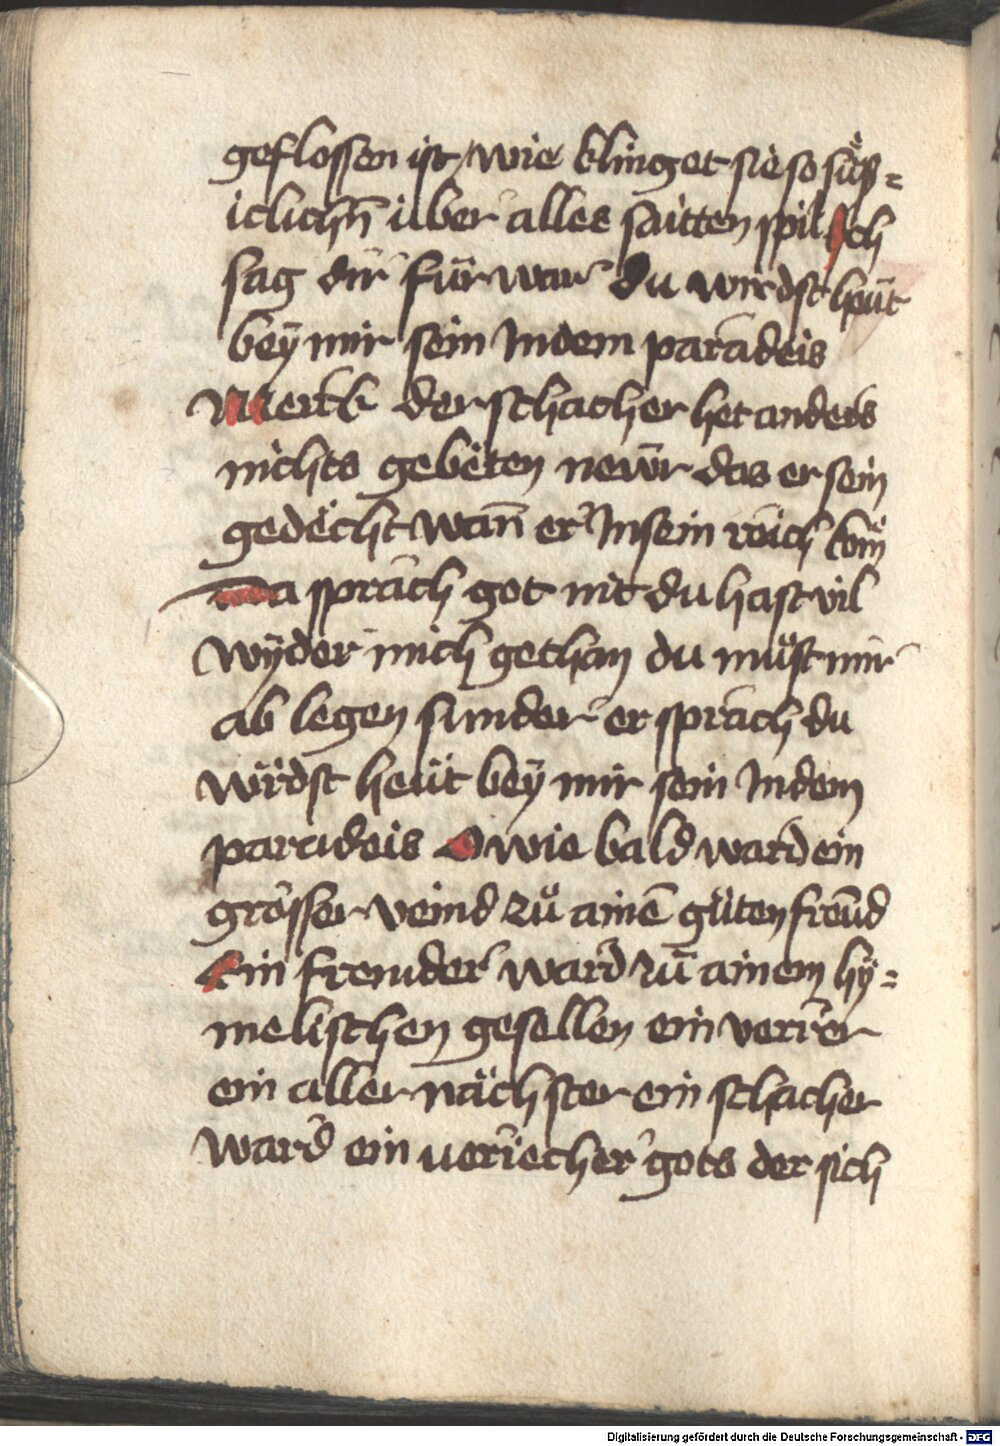 geflossen ist / wie klinget sie so süͤß=
iclichn̄ über alles saitten spil Ich
sag dir für war du wirdst heüt
bey mir sein Indem paradeis
Merck der schacher het anders
nichts gebëten newr das er sein
gedëcht wan̄ er In sein reich kom̈
Da sprach got nit du hast vil
wÿder mich gethan du muͤst mir
ab legen sunder er sprach du
wirdst heüt beÿ mir sein Indem
paradeis O wie bald ward ein
grösser veind zuͤ ainē gůten freünd
Ein fremder ward zuͤ ainem hÿ=
melischen gesellen ein verrer
ein aller nächster ein schacher
ward ein veriecher gots der sich
Digitalisierung gefördert durch die Deutsche Forschungsgemeinschaft - DFG